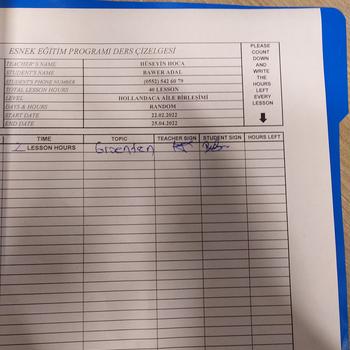 ESNEK EĞİTİM PROGRAMI DERS ÇİZELGESİ
TEACHER'S NAME HÜSEYİN HOCA
STUDENT'S NAME BAWER ADAL
STUDENT'S PHONE NUMBER (0552) 542 60 79
TOTAL LESSON HOURS 40 LESSON
LEVEL HOLLANDACA AİLE BİRLEŞİMİ
DAYS & HOURS RANDOM
START DATE 22.02.2022
END DATE 25.04.2022
PLEASE
COUNT
DOWN
AND
WRITE
THE
HOURS
LEFT
EVERY
LESSON
TIME TOPIC TEACHER SIGN STUDENT SIGN HOURS LEFT
2 LESSON HOURS Groenten